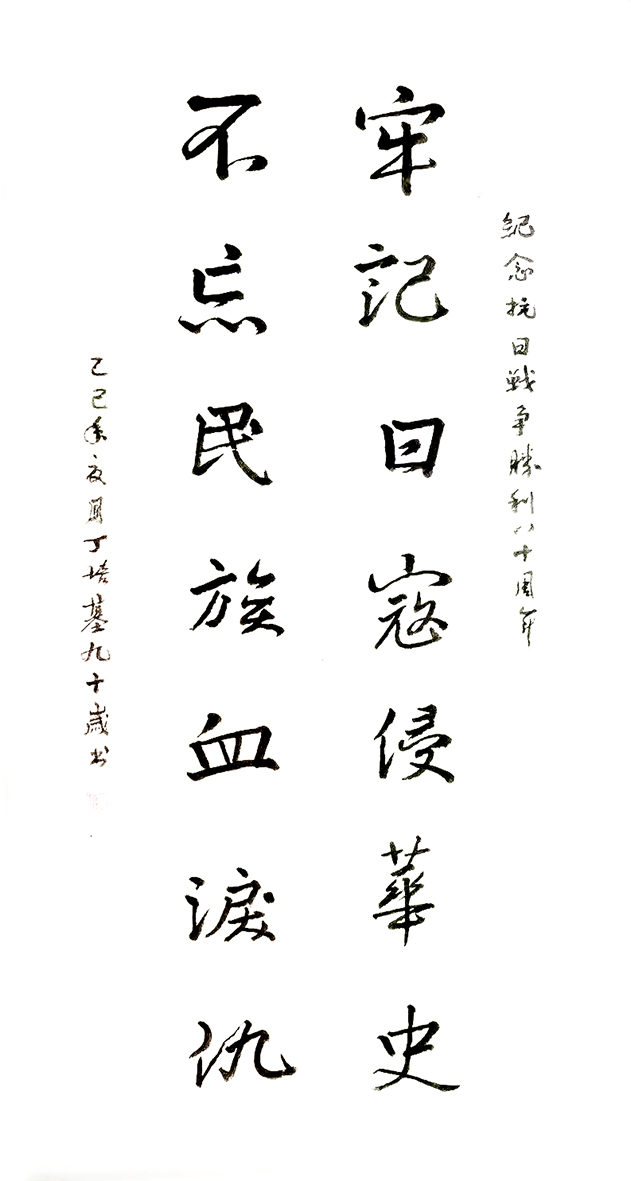 紀念抗日戰爭勝利八十周年
牢記日寇侵華史
不忘民族血淚仇
乙巳年夏月丁培基九十歲书